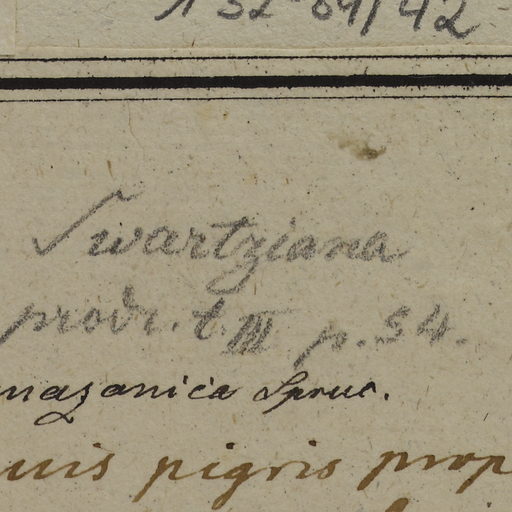 Swartziana
prodr. t. III p. 54.
mazanica Spruc.
uis pigris prop